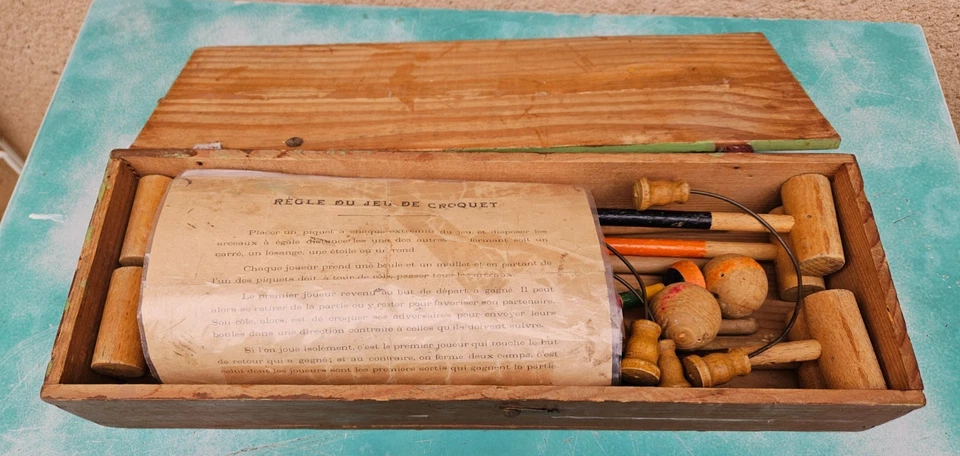 RÈGLE DU JEU DE CROQUET
Placer un piquet à chaque extrémité du jeu et disposer les
arceaux à égale distance les uns des autres en formant soit un
carré, un losange, une étoile ou un rond.
Chaque joueur prend une boule et un maillet et en partant de
l'un des piquets doit à tour de rôle passer tous les arceaux.
Le premier joueur revenu au but de départ a gagné. Il peut
alors se retirer de la partie ou y rester pour favoriser son partenaire.
Son rôle, alors, est de croquer ses adversaires pour envoyer leurs
boules dans une direction contraire à celles qu'ils doivent suivre.
Si l'on joue isolément, c'est le premier joueur qui touche le but
de retour qui a gagné; si au contraire, on forme deux camps, c'est
celui dont les joueurs sont les premiers sortis qui gagnent la partie